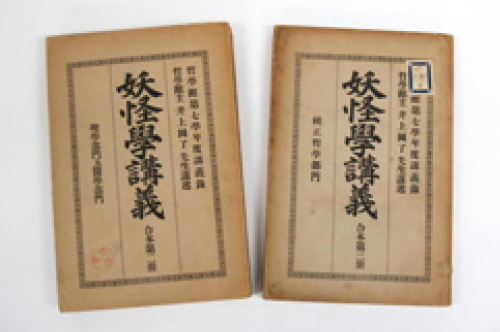 哲學館第七學年度講義錄
哲學館主 井上圓了先生講述
妖怪學講義
合本第二冊
理學部門及醫學部門
館第七學年度講義錄
哲學館主 井上圓了先生講述
妖怪學講義
合本第三冊
純正哲學部門